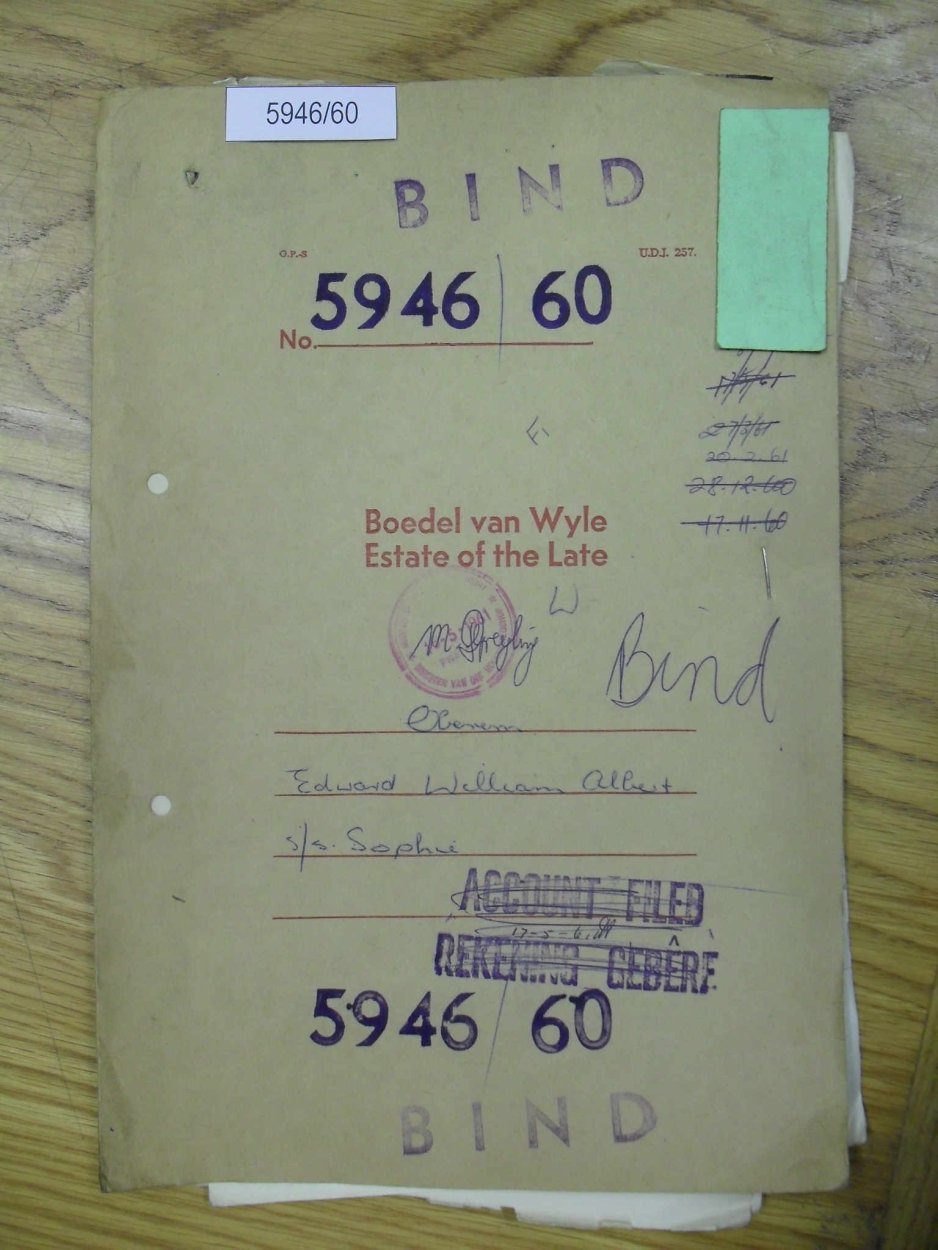 5946/60
BIND
G.P.-S U.D.J. 257.
5946 60
No.
27/3/61
20.2.61
28.12.60
17.11.60
Boedel van Wyle
Estate of the Late
W
Bind
Oberem
Edward William Albert
s/s. Sophie
ACCOUNT FILED
17-5-61
REKENING GEBÊRE
5946 60
BIND